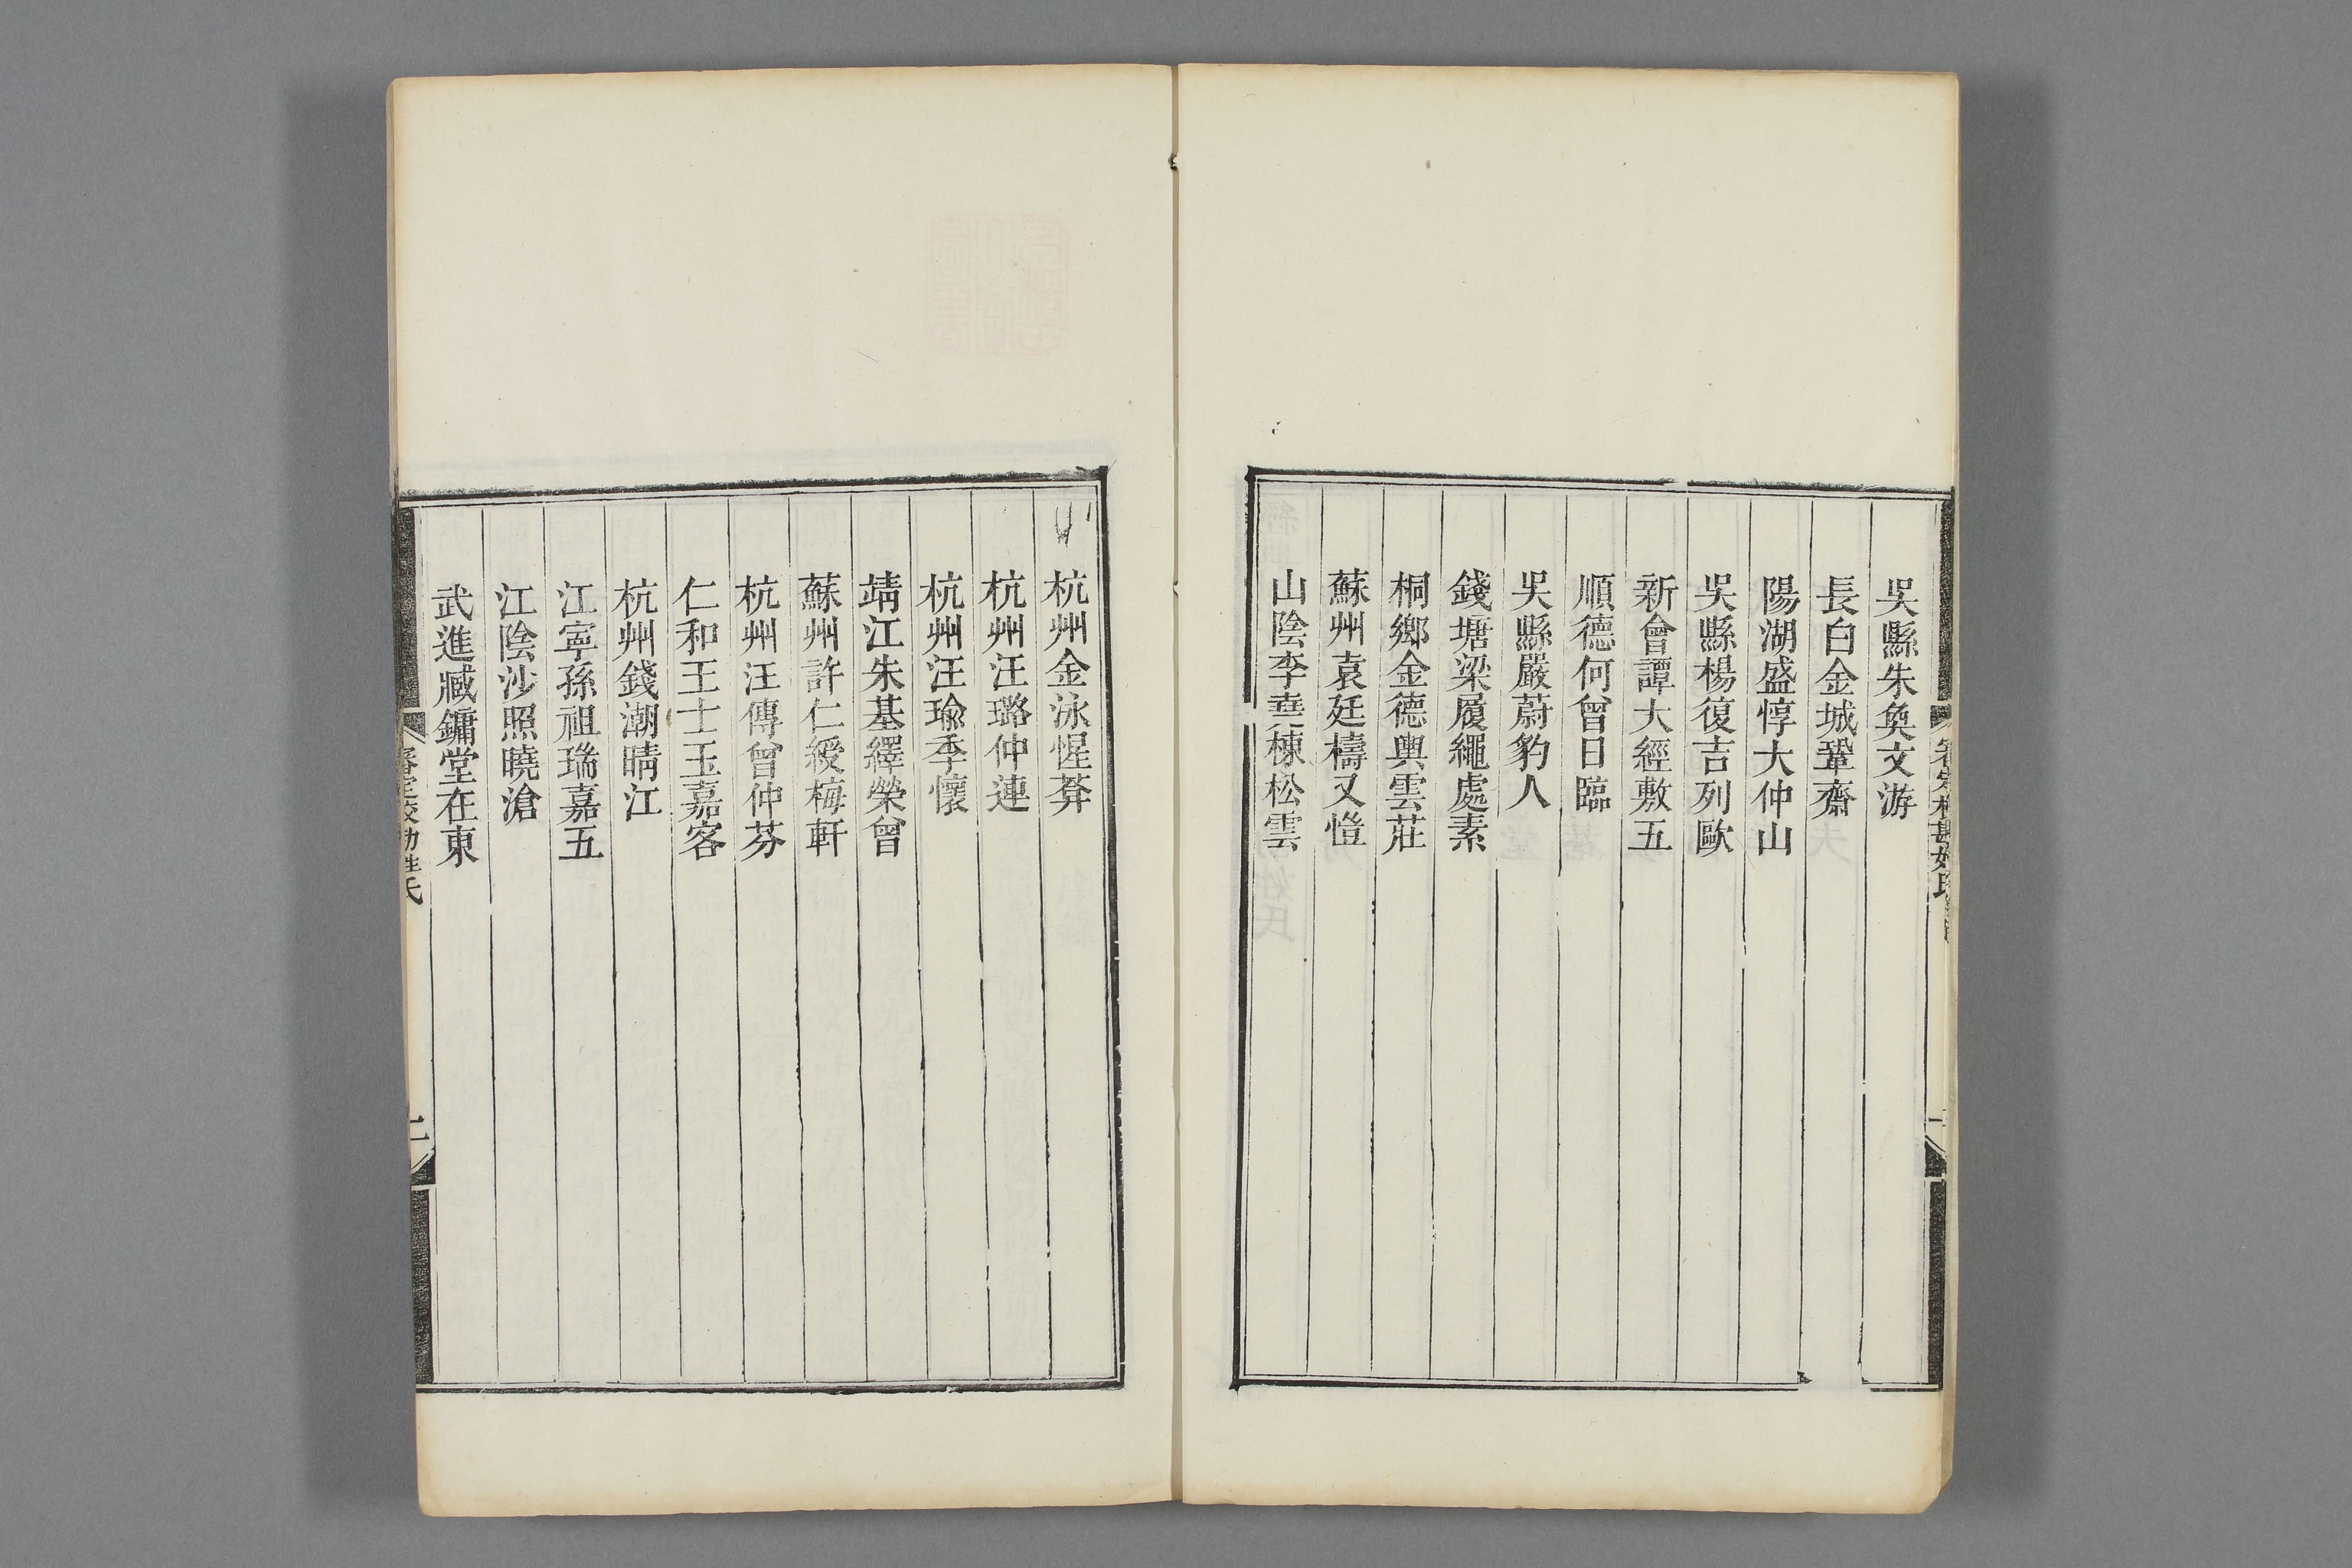 吳縣朱奐文游
長白金城鞏齋
陽湖盛惇大仲山
吳縣楊復吉列歐
新會譚大經敷五
順德何曾日臨
吳縣嚴蔚豹人
錢塘梁履繩處素
桐鄉金德輿雲莊
蘇州袁廷檮又愷
山陰李堯棟松雲
杭州金泳惺葊
杭州汪璐仲連
杭州汪瑜季懷
靖江朱基繹榮曾
蘇州許仁緩梅軒
杭州汪傳曾仲芬
仁和王士玉嘉客
杭州錢潮晴江
江寧孫祖瑞嘉五
江陰沙照曉滄
武進臧鏞堂在東
審定校勘姓氏
二